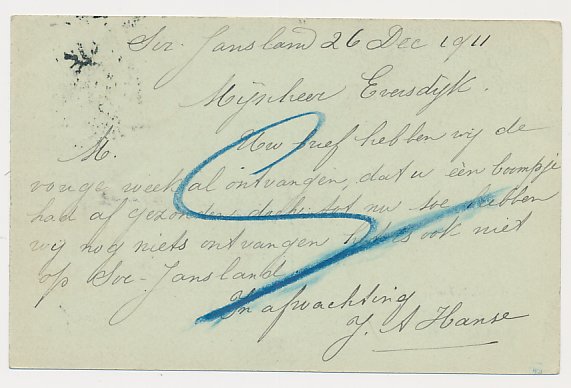 Svr. Jansland 26 Dec 1911
Mijnheer Eversdijk.
M. Uw brief hebben wij de
vorige week al ontvangen, dat u één boompje
had af gezonden, doch tot nu toe hebben
wij nog niets ontvangen, het is ook niet
op Svr-Jansland.
In afwachting
J. A Hanse